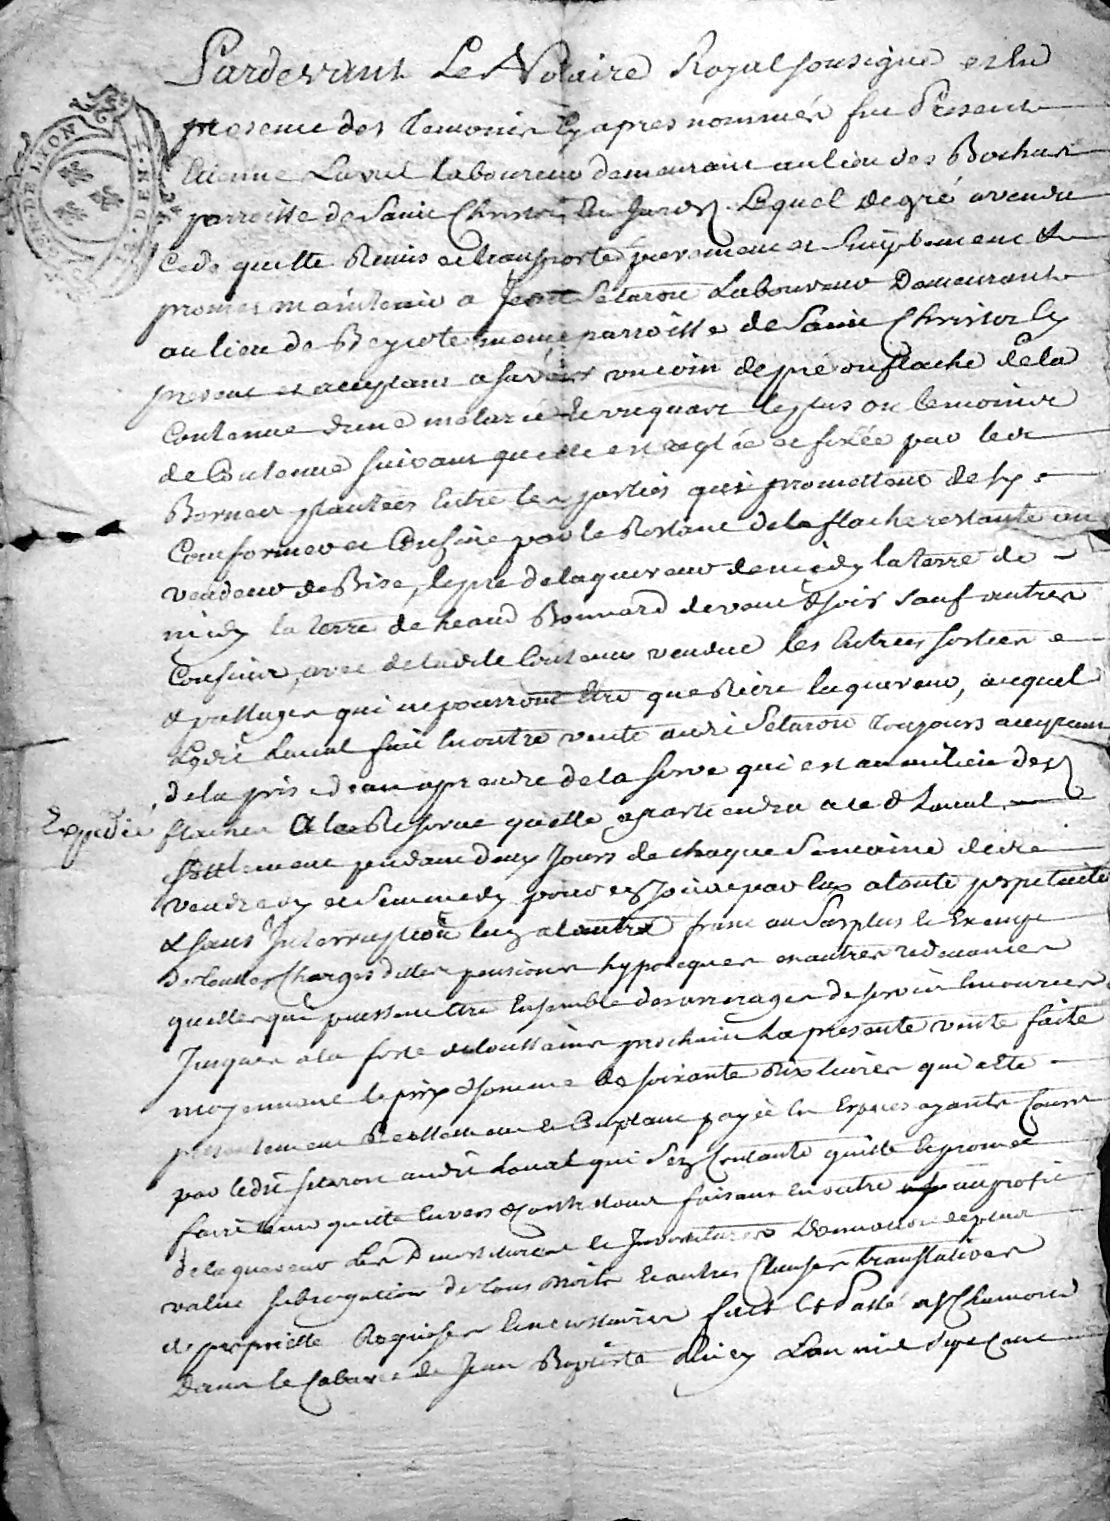 Pardevant Le Notaire Royal sousigné et En
presence des temoins Cy apres nommés fut Present
Etienne Laval laboureur demeurant au lieu des
parroisse de Saint Christo En Jarez Lequel de gré a vendu
Cedé quitte Remis et transporté purement et simplement &
promet maintenir a Jean Setaron Laboureur Demeurant
au lieu de meme parroisse de Saint Christo Cy
present et acceptant a savoir un coin de pré ou flache de la
Contenue d'une un quart le plus ou le moins
de Contenue suivant quelle est reglée et fixée par les
Bornes plantées Entre les parties qui promettent de sy
Conformer et Confine par le Restant de la flache restante au
vendeur de Bise, le pré de laquereur de midy la terre de
midy la terre de Bonnard de vent & soir sauf autres
Confins, avec de ladite Contenue vendue les Entrées sorties
& passages qui ne pourront Etre que Riere laquereur, auquel
Ledit Laval fait en outre vente audit Setaron toujours acceptant
de la prise d'eau a prendre de la serve qui est au milieu des
Expedié
flaches A la Reserve quelle apartiendra a le d Laval
seullement pendant deux Jours de chaque Semaine
vendredy et Sammedy pour en Jouir par luy a toute perpetuité
& sans Interruption luy a franc au Surplus & Exempt
de toutes Charges dettes pensions hypoteques et autres redevances
quelles que puissent etre Ensemble des arrerages de servis Encourus
Jusques a la feste de toussaints prochain La presente vente faite
moyennant le prix & somme de soixante dix livres qui a ete
presentement Reellement & Comptant payée En Especes ayants Cours
par ledit Setaron audit Laval qui sen Contante quitte & promet
faire tenir quitte Envers & Contre tous faisant En outre au profit
de laquereur Les & Investitures Demission de plus
value subrogation de tous droits & autres Clauses translatives
de proprieté Requises & necessaires fait et Passé a St Chamond
Dans le Cabaret de Jean Baptiste L'an mil sept Cent
GEN. DE LYON